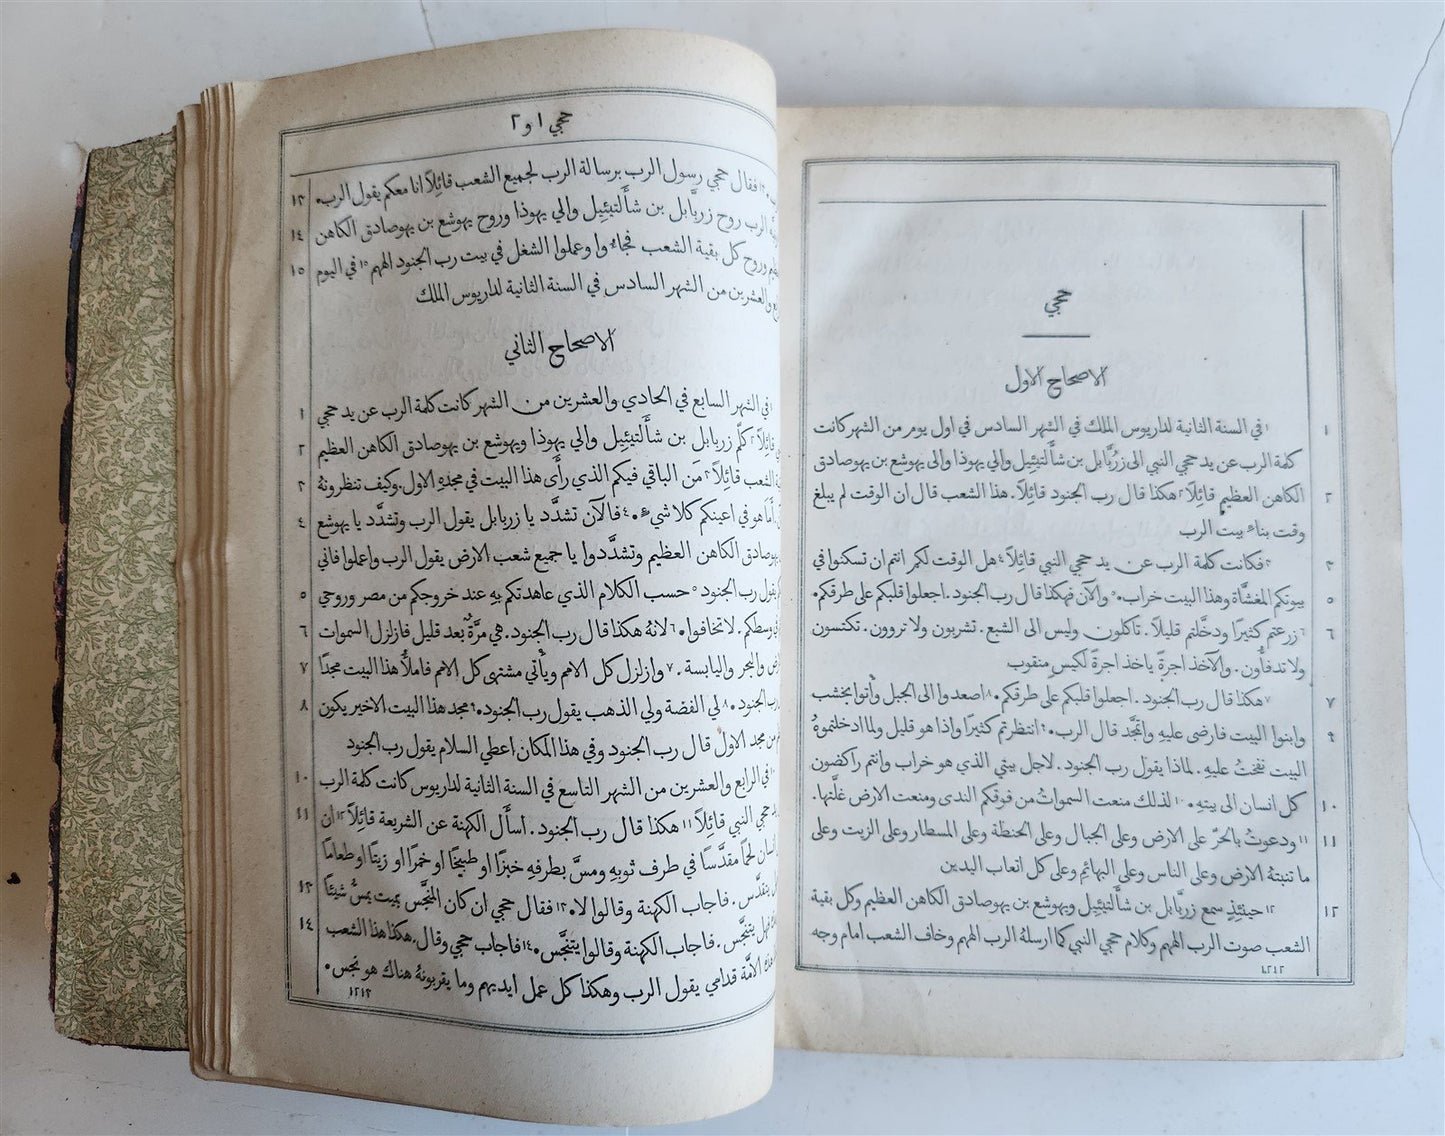 حجي
الاصحاح الاول
١ ١ في السنة الثانية لداريوس الملك في الشهر السادس في اول يوم من الشهر كانت
كلمة الرب عن يد حجي النبي الى زَرُبَّابل بن شأَلتيئيل والي يهوذا والى يهوشع بن يهوصادق
٢ الكاهن العظيم قائِلاً ٢ هكذا قال رب الجنود قائِلاً. هذا الشعب قال ان الوقت لم يبلغ
وقت بناء بيت الرب
٣ ٣ فكانت كلمة الرب عن يد حجي النبي قائِلاً ٤ هل الوقت لكم انتم ان تسكنوا في
٥ بيوتكم المغشَّاة وهذا البيت خراب. ٥ والآن فهكذا قال رب الجنود. اجعلوا قلبكم على طرقكم.
٦ ٦ زرعتم كثيرًا ودخَّلتم قليلاً. تأكلون وليس الى الشبع. تشربون ولا تروون. تكتسون
ولا تدفأُون. والآخذ اجرةً ياخذ اجرةً لكيسٍ منقوب
٧ ٧ هكذا قال رب الجنود. اجعلوا قلبكم على طرقكم. ٨ اصعدوا الى الجبل وأْتوا بخشب
٩ وابنوا البيت فارضى عليهِ واتمجَّد قال الرب. ٩ انتظرتم كثيرًا واذا هو قليل ولما ادخلتموهُ
البيت نفختُ عليهِ. لماذا يقول رب الجنود. لاجل بيتي الذي هو خراب وانتم راكضون
١٠ كل انسان الى بيتهِ. ١٠ لذلك منعت السموات من فوقكم الندى ومنعت الارض غلَّتها.
١١ ١١ ودعوتُ بالحرّ على الارض وعلى الجبال وعلى الحنطة وعلى المسطار وعلى الزيت وعلى
ما تنبتهُ الارض وعلى الناس وعلى البهائِم وعلى كل اتعاب اليدين
١٢ ١٢ حينئِذٍ سمع زربَّابل بن شأَلتيئيل ويهوشع بن يهوصادق الكاهن العظيم وكل بقية
الشعب صوت الرب الههم وكلام حجي النبي كما ارسلهُ الرب الههم وخاف الشعب امام وجه
١٢١٢
حجي ١ و ٢
١٣ ١٣ فقال حجي رسول الرب برسالة الرب لجميع الشعب قائِلاً انا معكم يقول الرب.
١٤ الرب روح زربَّابل بن شأَلتيئيل والي يهوذا وروح يهوشع بن يهوصادق الكاهن
١٥ وروح كل بقية الشعب فجاءوا وعملوا الشغل في بيت رب الجنود الههم ١٥ في اليوم
والعشرين من الشهر السادس في السنة الثانية لداريوس الملك
الاصحاح الثاني
١ ١ في الشهر السابع في الحادي والعشرين من الشهر كانت كلمة الرب عن يد حجي
٢ قائِلاً ٢ كلّم زربابل بن شأَلتيئيل والي يهوذا ويهوشع بن يهوصادق الكاهن العظيم
٣ الشعب قائِلاً ٣ مَن الباقي فيكم الذي رأَى هذا البيت في مجدهِ الاول. وكيف تنظرونهُ
٤ أَما هو في اعينكم كلا شيءٍ. ٤ فالآن تشدَّد يا زربابل يقول الرب وتشدَّد يا يهوشع
يهوصادق الكاهن العظيم وتشدَّدوا يا جميع شعب الارض يقول الرب واعملوا فاني
٥ يقول رب الجنود ٥ حسب الكلام الذي عاهدتكم بهِ عند خروجكم من مصر وروحي
٦ وسطكم. لا تخافوا. ٦ لانهُ هكذا قال رب الجنود. هي مرَّةٌ بعد قليل فازلزل السموات
٧ والبحر واليابسة. ٧ وازلزل كل الامم ويأْتي مشتهى كل الامم فاملأُ هذا البيت مجدًا
٨ رب الجنود. ٨ لي الفضة ولي الذهب يقول رب الجنود. ٩ مجد هذا البيت الاخير يكون
من مجد الاول قال رب الجنود وفي هذا المكان اعطي السلام يقول رب الجنود
١٠ ١٠ في الرابع والعشرين من الشهر التاسع في السنة الثانية لداريوس كانت كلمة الرب
١١ حجي النبي قائِلاً ١١ هكذا قال رب الجنود. اسأَل الكهنة عن الشريعة قائِلاً ١٢ ان
انسان لحمًا مقدَّسًا في طرف ثوبهِ ومسَّ بطرفهِ خبزًا او طبيخًا او خمرًا او زيتًا او طعامًا
١٣ يتقدَّس. فاجاب الكهنة وقالوا لا. ١٣ فقال حجي ان كان المنجَّس بميت يمسُّ شيئًا
١٤ فهل يتنجَّس. فاجاب الكهنة وقالوا يتنجَّس. ١٤ فاجاب حجي وقال. هكذا هذا الشعب
الامَّة قدامي يقول الرب وهكذا كل عمل ايديهم وما يقربونهُ هناك هو نجس.
١٢١٣